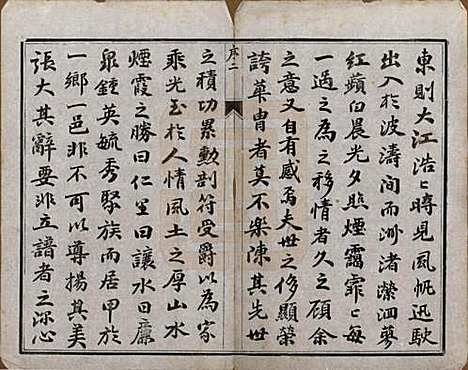 東則大江浩浩時見風帆迅駛
出入於波濤間而洲渚縈洄蓼
紅蘋白晨光夕照煙靄霏霏每
一遇之為之移情者久之顧余
之意又自有感焉夫世之侈顯榮
誇華胄者莫不樂陳其先世
序二
之積功累勳剖符受爵以為家
乘光至於人情風土之厚山水
煙霞之勝曰仁里曰讓水曰廉
泉鍾英毓秀聚族而居甲於
一鄉一邑非不可以尊揚其美
張大其辭要非立譜者之深心